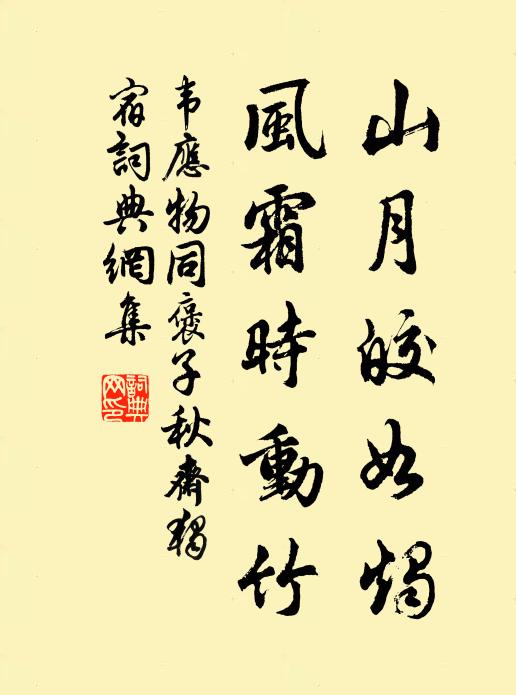 山月皎如燭
風霜時動竹
韦應物同褒子秋齋獨
宿詞典網集
詞典
网印